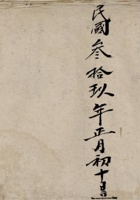 民國叁拾玖年正月初十日